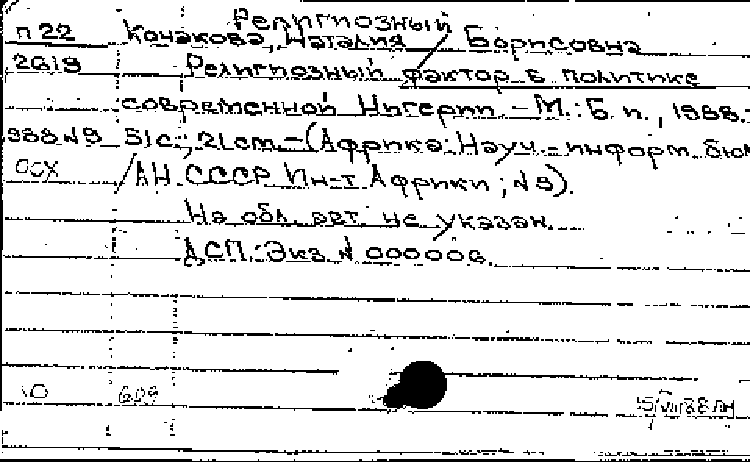 Религиозный
п 22 Кочакова, Наталия Борисовна
2618 Религиозный фактор в политике
современной Нигерии. - М.: Б. и., 1988. -
988 N9 51с.; 21см. - (Африка: Науч.-информ. бюл
ОСХ /АН СССР. Ин-т Африки; N9).
На обл. авт. не указан.
ДСП. Экз. N 000006.
10 609 15/VII 88 лн